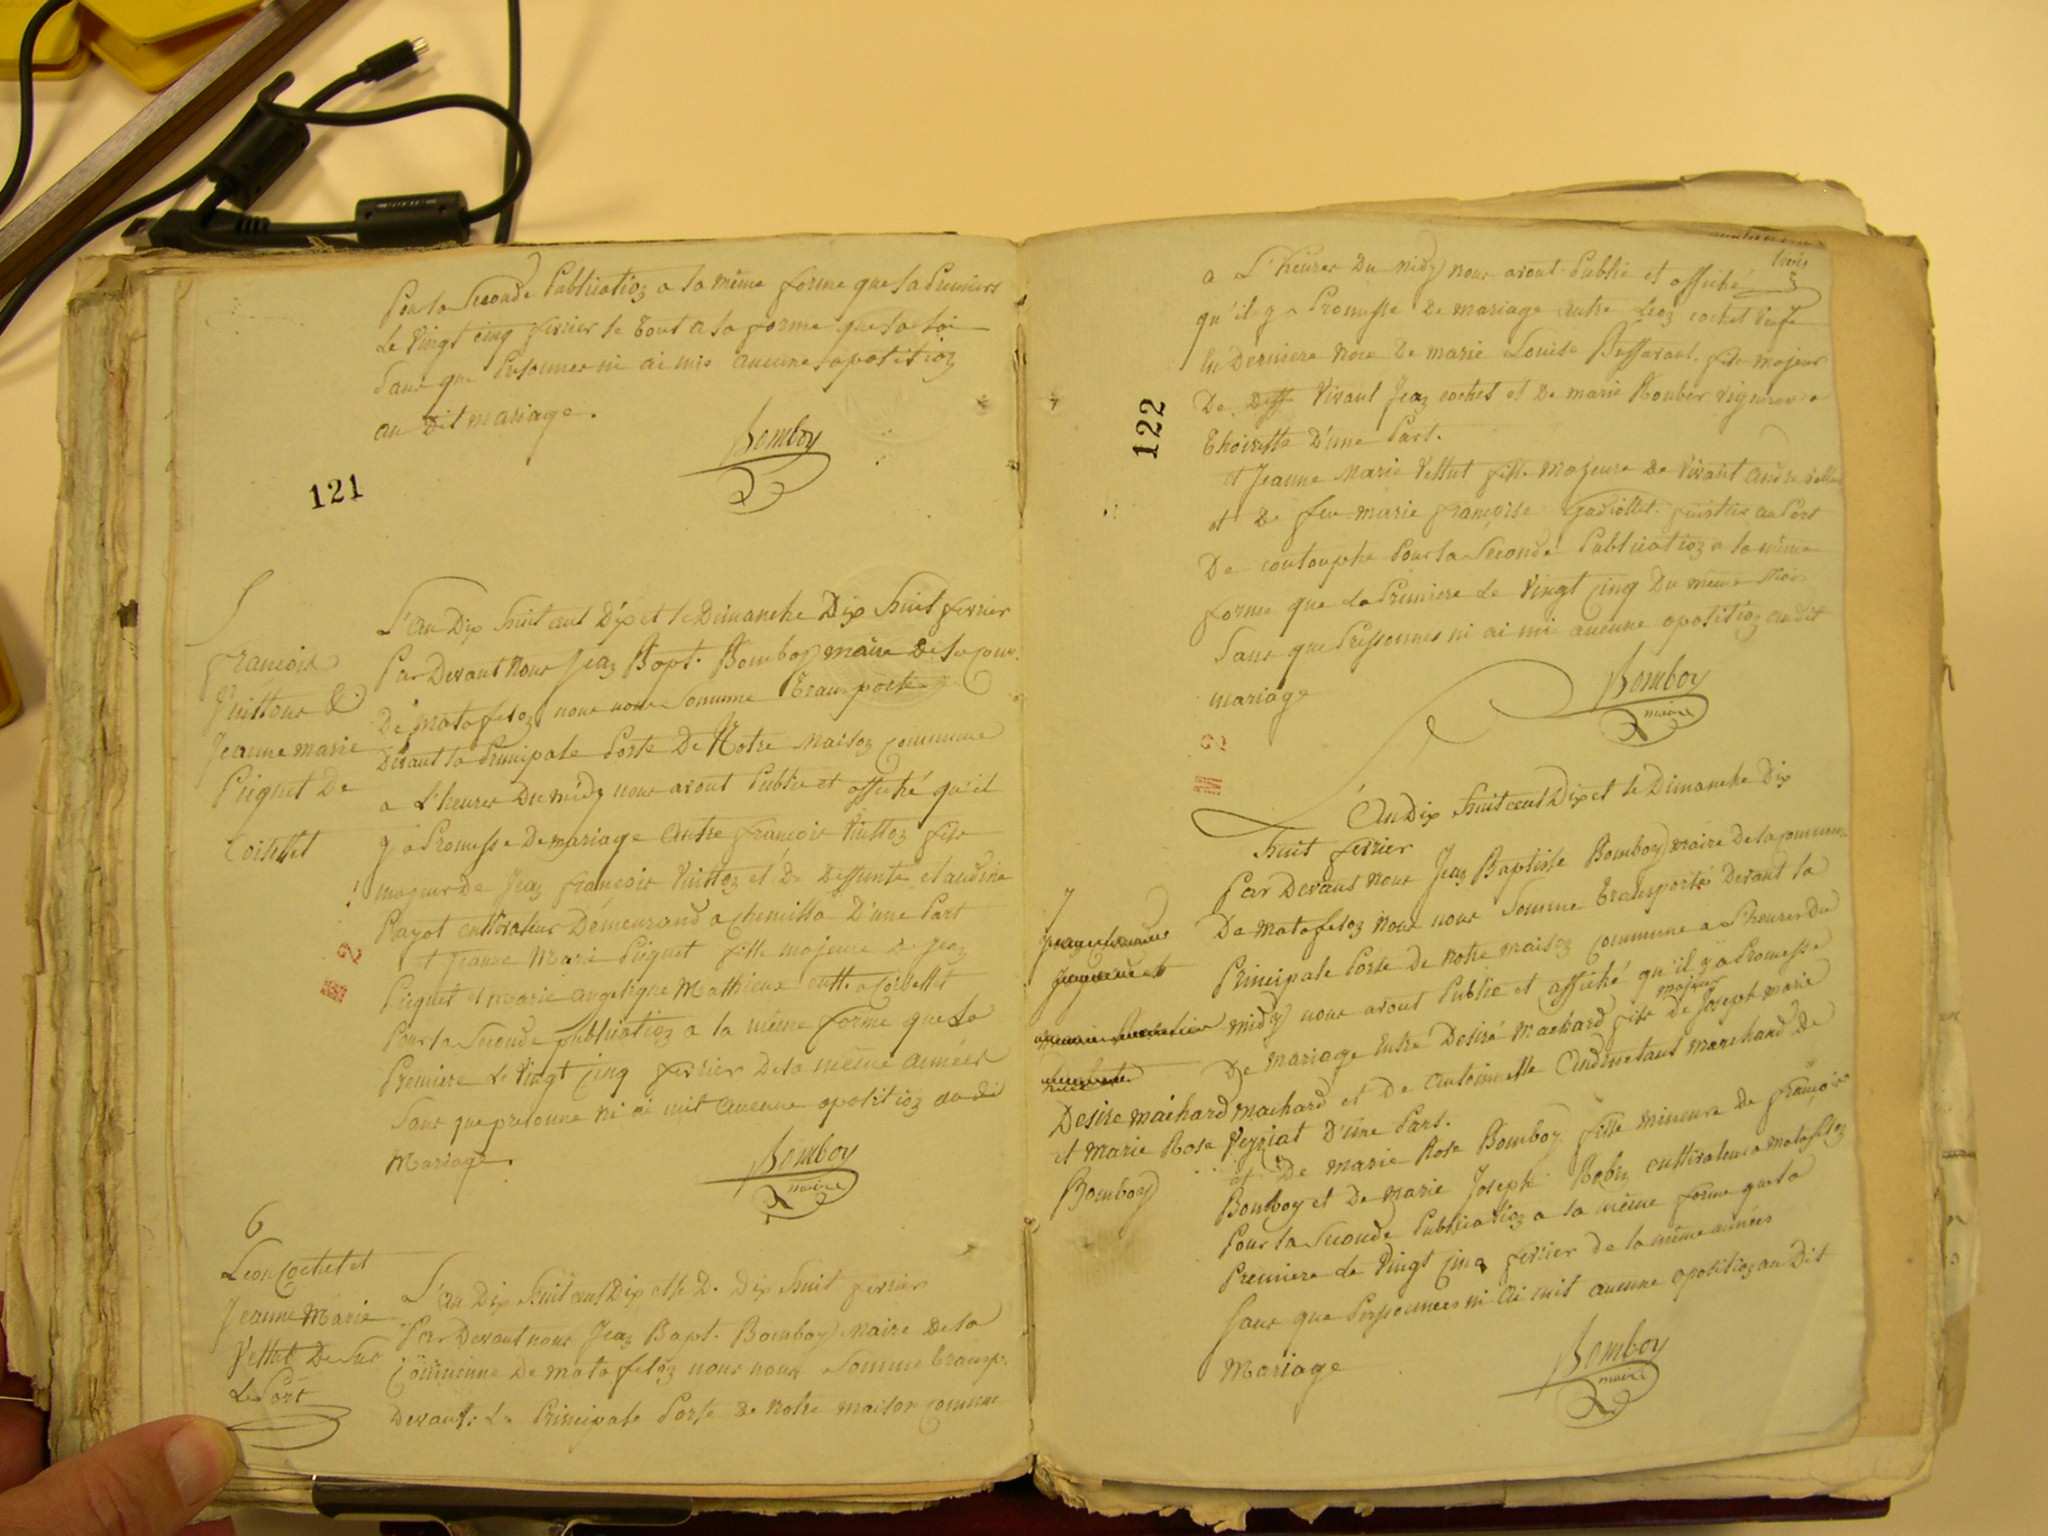 Pour la Seconde Publication a la même forme que la Premiere
Le Vingt cinq fevrier le tout a la forme que la Loi
Sans que Personnes ni ai mis aucune opotition
au Dit mariage.
Bomboy
121
5
francois
Vuitton &
Jeanne marie
Piquet De
Coisellet
L'an Dix huit cent Dix et le Dimanche Dix huit fevrier
Par Devant nous Jean Bapt. Bomboy maire De la com.
De matafelon nous nous somme transporté
Devant la Principale Porte De Notre maison commune
a L'heures Du midy nous avont Publie et affiché qu'il
y a Promesse De mariage Entre francois Vuitton fils
majeur de Jean francois Vuitton et De Deffunte claudine
Payot cultivateur Demeurand a chemilla D'une Part
et Jeanne Marie Piquet fille majeure de Jean
Piquet et marie angelique Mathieux cult. a Coisellet
Pour la Seconde Publication a la même forme que La
Premiere Le Vingt cinq fevrier De la même années
Sans que presonne ni ai mit aucune opotition au dit
Mariage.
Bomboy
maire
6
Leon Cochet et
Jeanne Marie
Vellut De Sur
Le Port
L'an Dix huit cent Dix et le D. Dix huit fevrier
Par Devant nous Jean Bapt. Bomboy Maire De la
Commune De matafelon nous nous somme transp.
Devant La Principale Porte de notre maison commune
trois
a L'heures Du midy nous avont Publie et affiché
qu'il y a Promesse De mariage entre Leon cochet
en Derniere Noce De marie Louise fils majeur
De Vivant Jean cochet et De marie Roubier vigneron a
Thoirette D'une Part.
et Jeanne Marie Vellut fille majeure de Vivant andré
et De feu marie françoise au Port
De Pour la Seconde Publication a la même
forme que La Premiere Le Vingt cinq Du même mois
Sans que Perssonnes ni ai mi aucune opotition au dit
mariage
Bomboy
maire
122
L'An Dix huit cent Dix et le Dimanche Dix
huit fevrier
Par Devant nous Jean Baptiste Bomboy maire De la commune
De matafelon nous nous somme transporté Devant la
Principale Porte de notre maison commune a L'heures Du
midy nous avont Publie et affiché qu'il y a Promesse
majeur
De mariage entre Desiré machard fils de Joseph marie
machard et De antoinette marchand de
Veyziat D'une Part.
et De marie Rose Bomboy fille mineure de françois
Bomboy et De marie Joseph Robin cultivateur a matafelon
Pour la Seconde Publication a la même forme que la
Premiere Le Vingt cinq fevrier de la même années
Sans que Perssonnes ni ai mit aucune opotition au Dit
Mariage
Bomboy
maire
7
Desire machard
et marie Rose
Bomboy